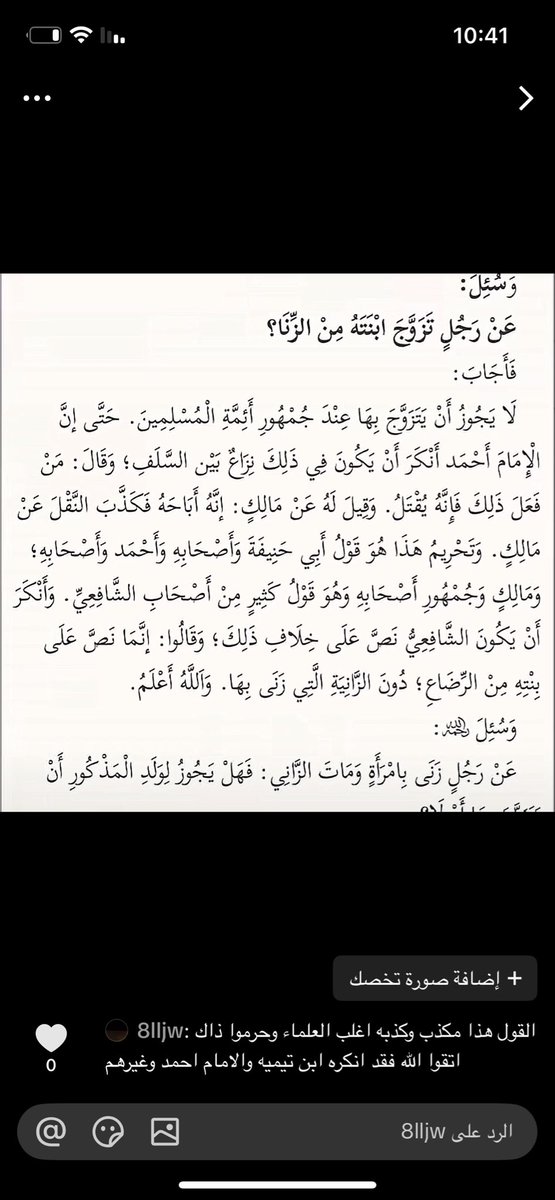 10:41
وَسُئِلَ:
عَنْ رَجُلٍ تَزَوَّجَ ابْنَتَهُ مِنْ الزِّنَا؟
فَأَجَابَ:
لَا يَجُوزُ أَنْ يَتَزَوَّجَ بِهَا عِنْدَ جُمْهُورِ أَئِمَّةِ الْمُسْلِمِينَ. حَتَّى إنَّ
الْإِمَامَ أَحْمَد أَنْكَرَ أَنْ يَكُونَ فِي ذَلِكَ نِزَاعٌ بَيْن السَّلَفِ؛ وَقَالَ: مَنْ
فَعَلَ ذَلِكَ فَإِنَّهُ يُقْتَلُ. وَقِيلَ لَهُ عَنْ مَالِكٍ: إنَّهُ أَبَاحَهُ فَكَذَّبَ النَّقْلَ عَنْ
مَالِكٍ. وَتَحْرِيمُ هَذَا هُوَ قَوْلُ أَبِي حَنِيفَةَ وَأَصْحَابِهِ وَأَحْمَد وَأَصْحَابِهِ؛
وَمَالِكٍ وَجُمْهُورِ أَصْحَابِهِ وَهُوَ قَوْلُ كَثِيرٍ مِنْ أَصْحَابِ الشَّافِعِيِّ. وَأَنْكَرَ
أَنْ يَكُونَ الشَّافِعِيُّ نَصَّ عَلَى خِلَافِ ذَلِكَ؛ وَقَالُوا: إنَّمَا نَصَّ عَلَى
بِنْتِهِ مِنْ الرِّضَاعِ؛ دُونَ الزَّانِيَةِ الَّتِي زَنَى بِهَا. وَاَللَّهُ أَعْلَمُ.
وَسُئِلَ رَحِمَهُ اللَّهُ:
عَنْ رَجُلٍ زَنَى بِامْرَأَةٍ وَمَاتَ الزَّانِي: فَهَلْ يَجُوزُ لِوَلَدِ الْمَذْكُورِ أَنْ
+ إضافة صورة تخصك
8lljw: القول هذا مكذب وكذبه اغلب العلماء وحرموا ذاك
اتقوا الله فقد انكره ابن تيميه والامام احمد وغيرهم
0
الرد على 8lljw